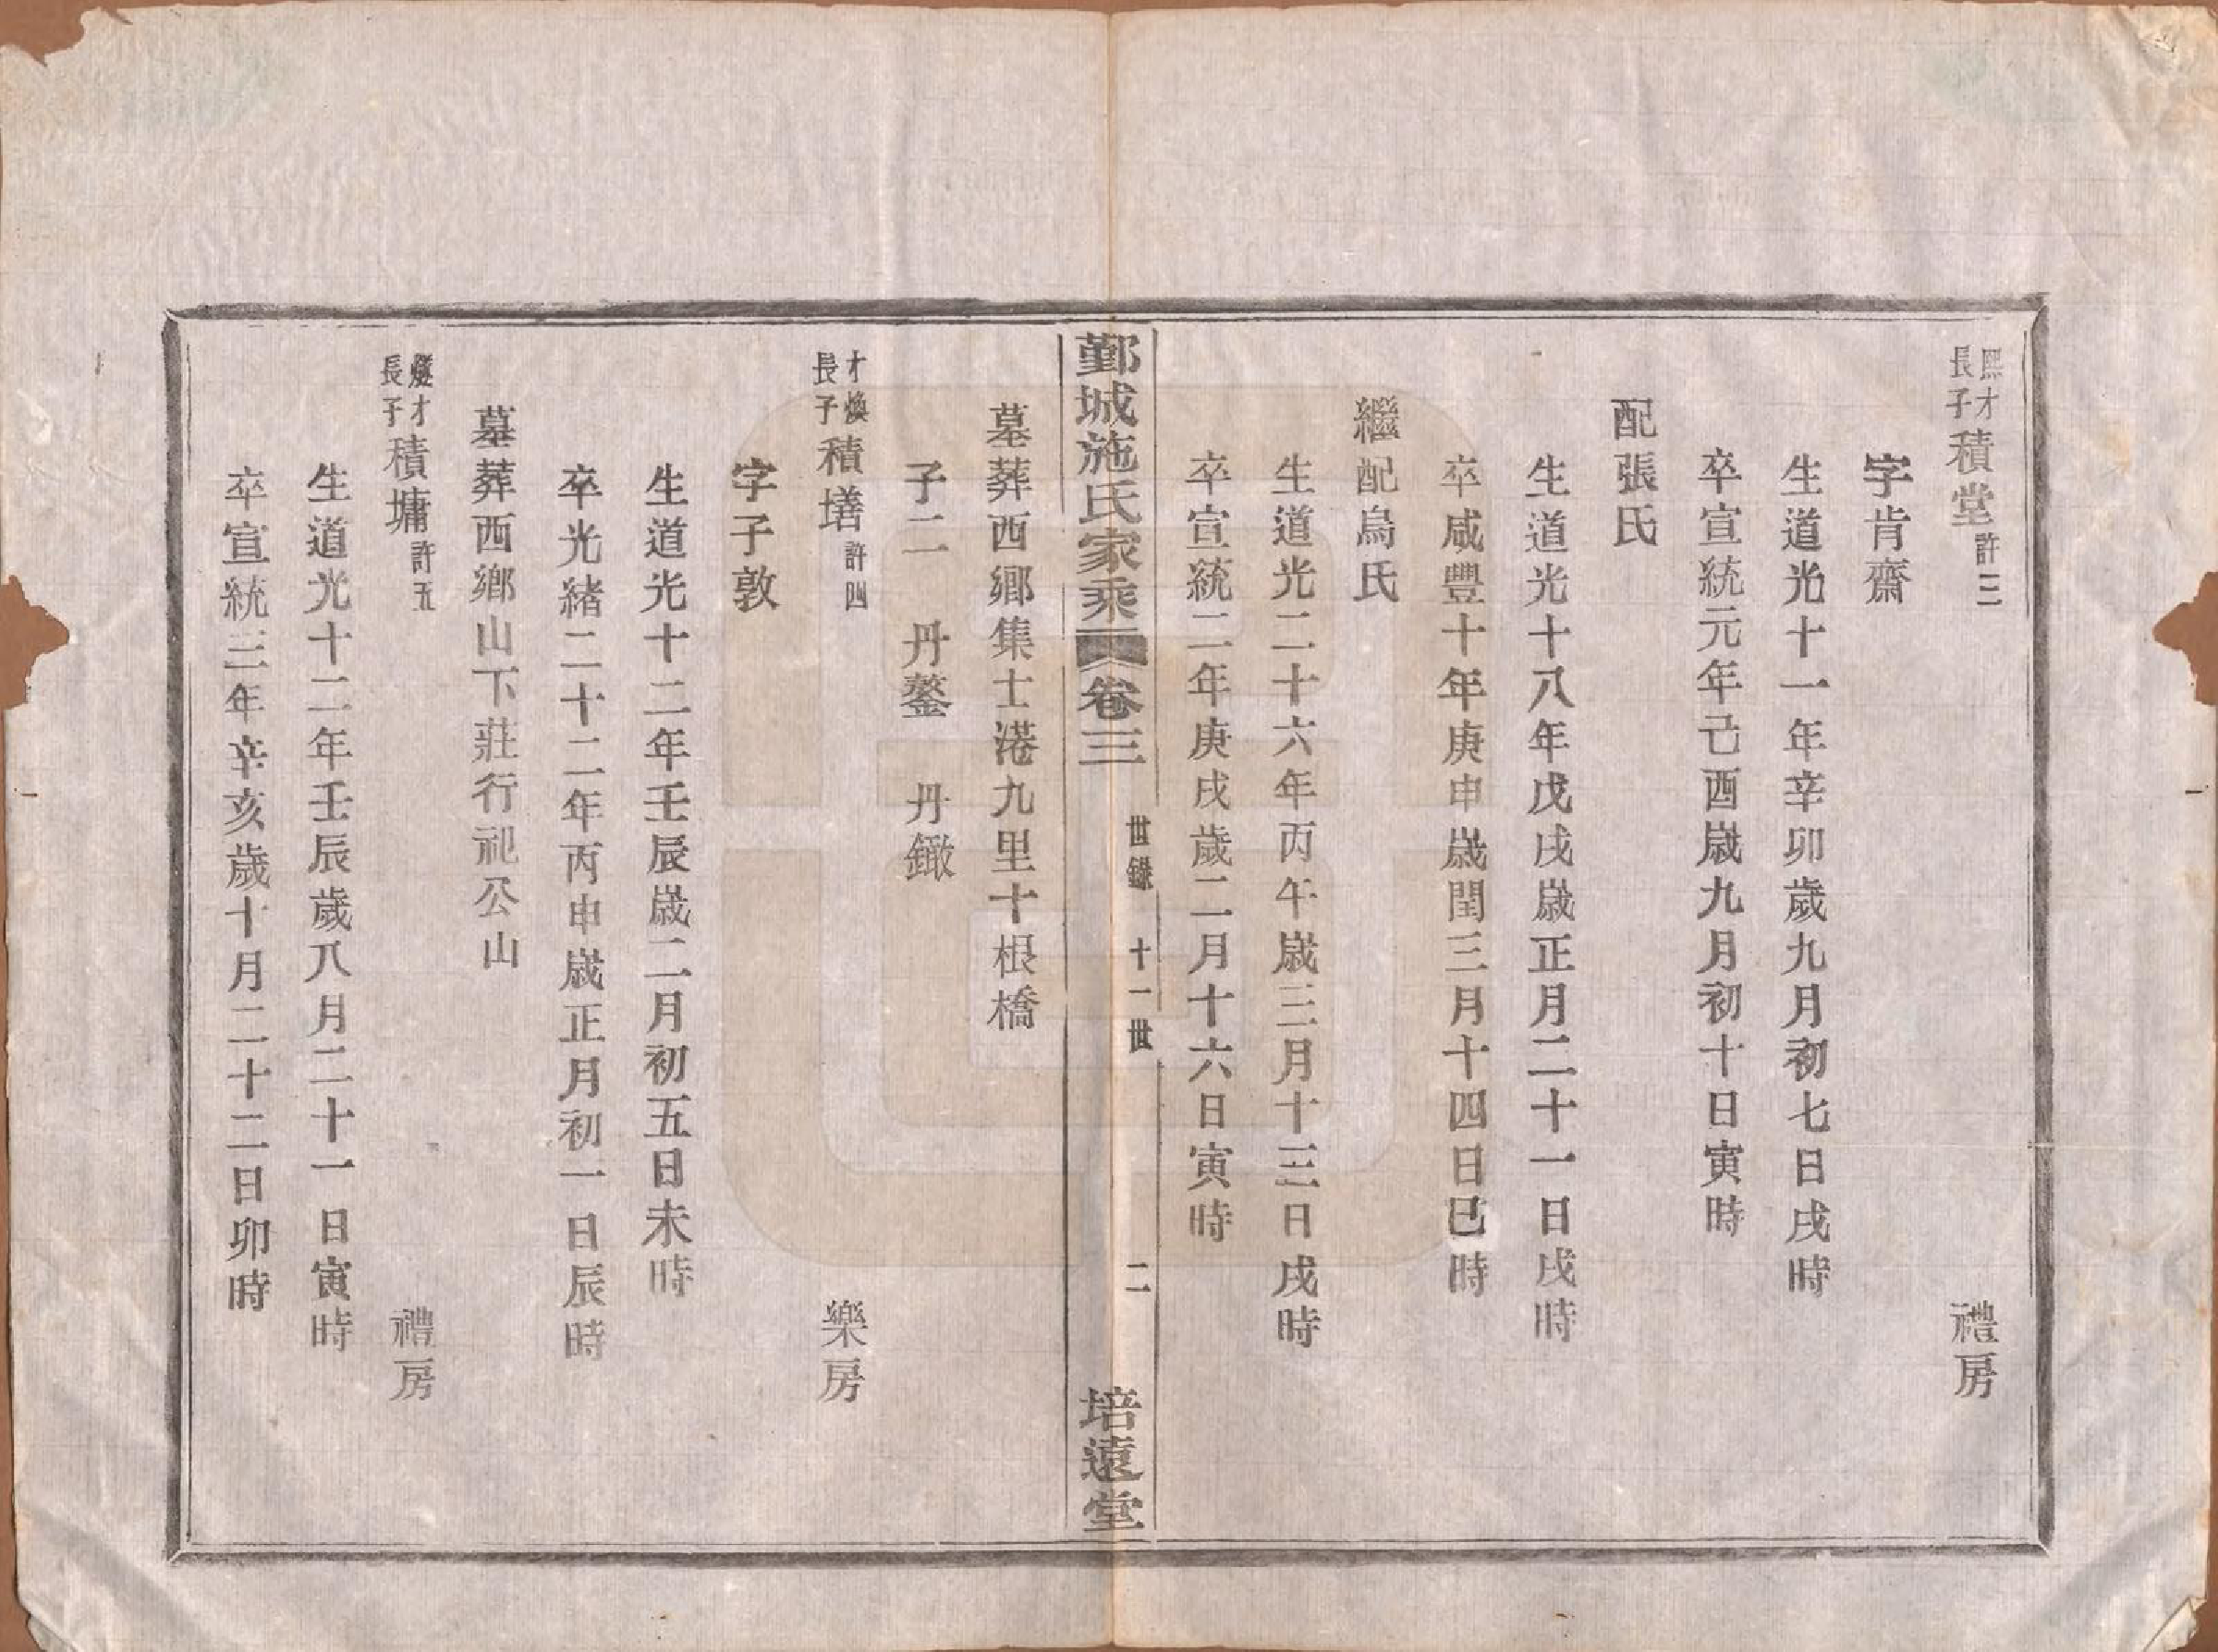 熙才長子積堂許三　禮房
字肯齋
生道光十一年辛卯歲九月初七日戌時
卒宣統元年己酉歲九月初十日寅時
配張氏
生道光十八年戊戌歲正月二十一日戌時
卒咸豐十年庚申歲閏三月十四日巳時
繼配烏氏
生道光二十六年丙午歲三月十三日戌時
卒宣統二年庚戌歲二月十六日寅時
鄞城施氏家乘　卷三　世錄　十一世　二　培遠堂
墓葬西鄉集士港九里十根橋
子二　丹鏊　丹鏾
才煥長子積墡許四　樂房
字子敦
生道光十二年壬辰歲二月初五日未時
卒光緒二十二年丙申歲正月初一日辰時
墓葬西鄉山下莊行祀公山
才長子積墉許五　禮房
生道光十二年壬辰歲八月二十一日寅時
卒宣統三年辛亥歲十月二十二日卯時